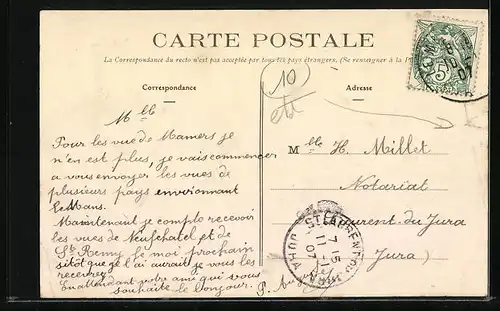 CARTE POSTALE
La Correspondance du recto n'est pas acceptée par tous les pays étrangers. (Se renseigner à la
Correspondance
Adresse
10
5
Mlle
Pour les vue de Mamers je
n'en est plus, je vais commencer
a vous envoyer les vues de
plusieurs pays environnant
leMans.
Maintenant je compte recevoir
les vues de Neufchatel et de
St Remy le moi prochain
sitot que je l'ai aurait je vous les
recevrez
En attendant votre ami qui vous
souhaite le bonjour.
Mlle H. Millet
Notariat
Laurent du Jura
Jura)
ST LAURENT-DU-JURA
17 - 5
07